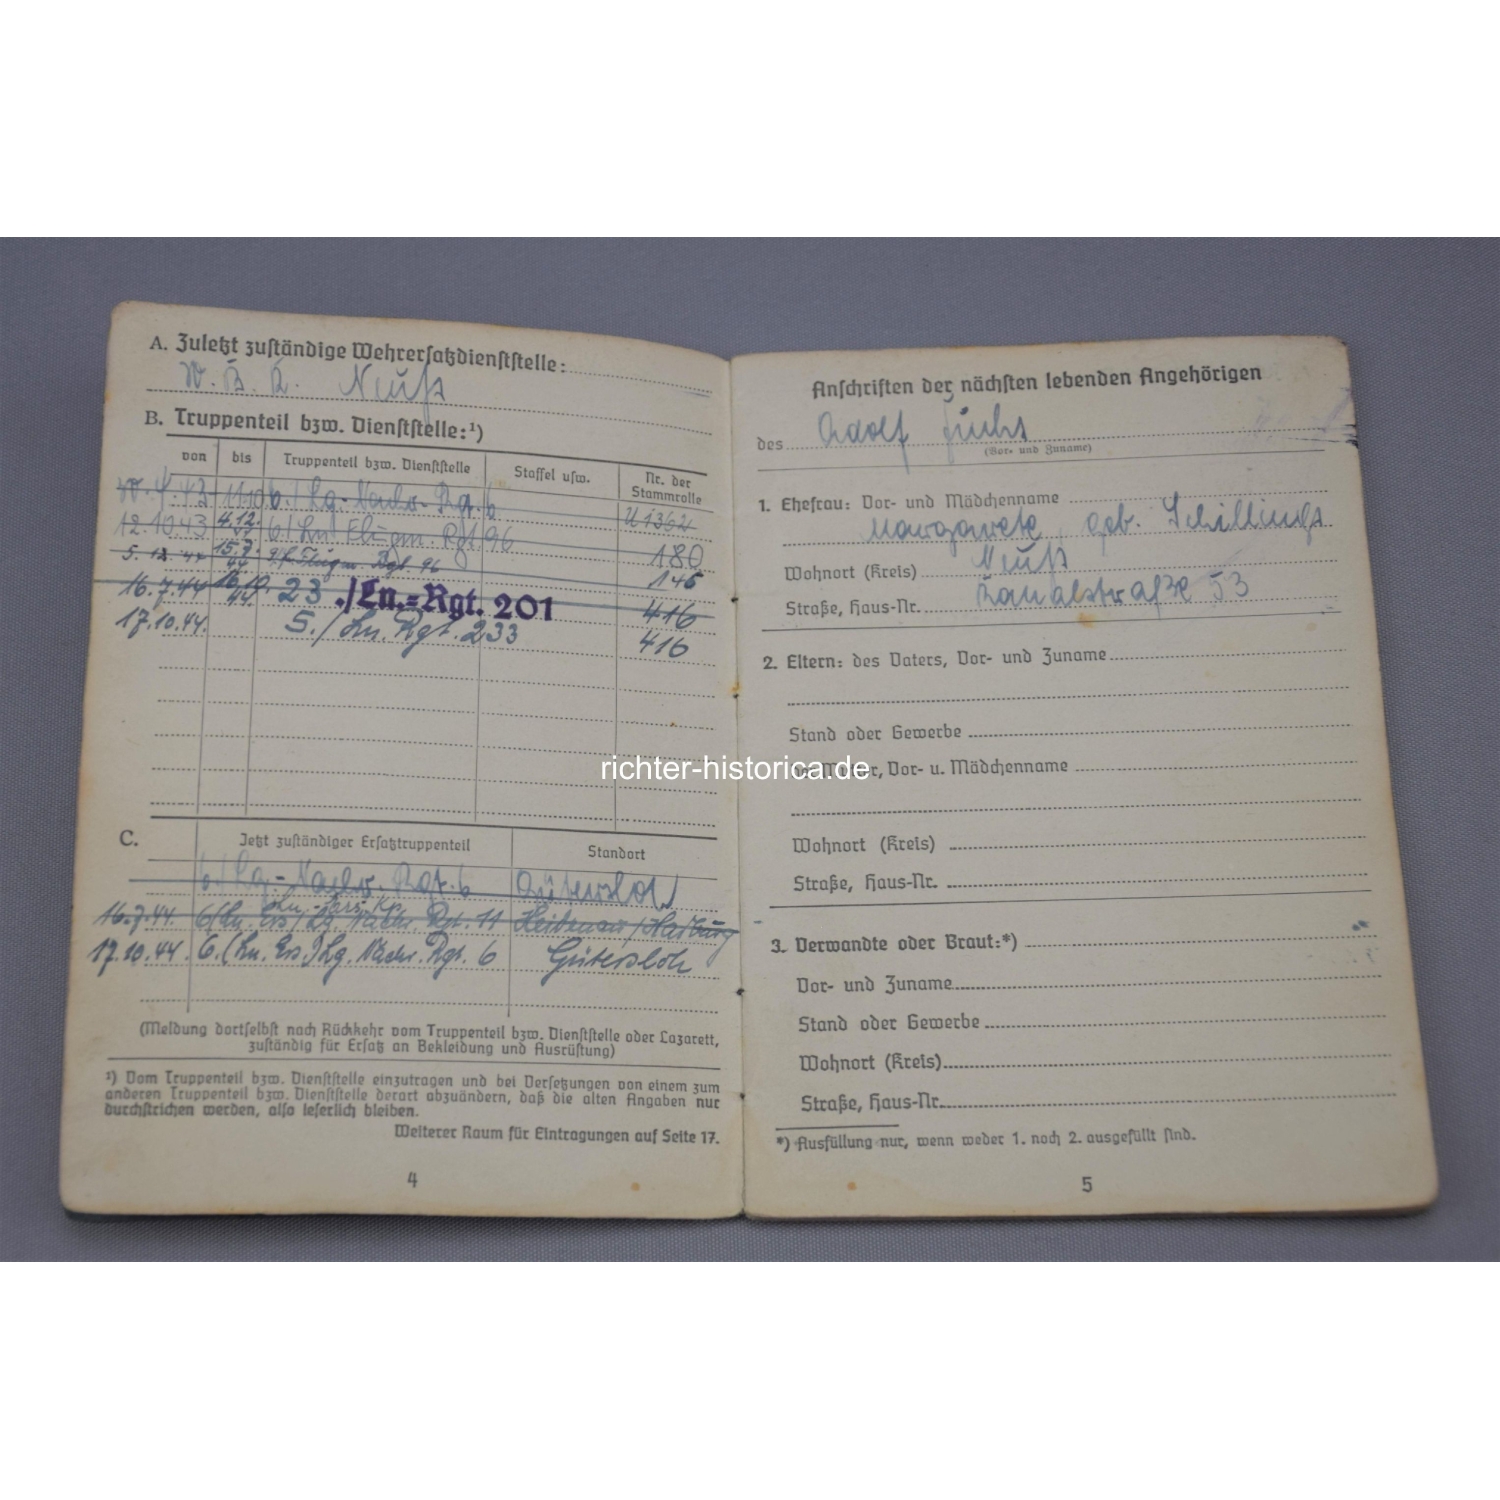 A. Zuletzt zuständige Wehrersatzdienststelle:
W. B. K. Neuß
B. Truppenteil bzw. Dienststelle:¹)
von bis Truppenteil bzw. Dienststelle Staffel usw. Nr. der Stammrolle
6./Lg.-Nachr.-Rgt. 6 1362
12.10.43 4.12. 6/Ln. Flugm. Rgt 96 180
5. 12. 15.7. 44 Flugm. Rgt. 96 145
16.7.44 16.10. 44. 23 ./Ln.=Rgt. 201 416
17.10.44. 5./Ln. Rgt. 233 416
C. Jetzt zuständiger Ersatztruppenteil Standort
6/Lg.-Nachr. Rgt. 6 Gütersloh
16.7.44. 6/(Ln. Ers) Lg. Nachr. Rgt. 11 /Harburg
17.10.44. 6.(Ln. Ers.)Lg. Nachr. Rgt. 6 Gütersloh
(Meldung dortselbst nach Rückkehr vom Truppenteil bzw. Dienststelle oder Lazarett,
zuständig für Ersatz an Bekleidung und Ausrüstung)
¹) Vom Truppenteil bzw. Dienststelle einzutragen und bei Versetzungen von einem zum
anderen Truppenteil bzw. Dienststelle derart abzuändern, daß die alten Angaben nur
durchstrichen werden, also leserlich bleiben.
Weiterer Raum für Eintragungen auf Seite 17.
4
Anschriften der nächsten lebenden Angehörigen
des Adolf Fuchs
(Vor- und Zuname)
1. Ehefrau: Vor- und Mädchenname
Margarete geb. Schillings
Wohnort (Kreis) Neuß
Straße, Haus-Nr. Kanalstraße 53
2. Eltern: des Vaters, Vor- und Zuname
Stand oder Gewerbe
der Mutter, Vor- u. Mädchenname
Wohnort (Kreis)
Straße, Haus-Nr.
3. Verwandte oder Braut:*)
Vor- und Zuname
Stand oder Gewerbe
Wohnort (Kreis)
Straße, Haus-Nr.
*) Ausfüllung nur, wenn weder 1. noch 2. ausgefüllt sind.
5
richter-historica.de